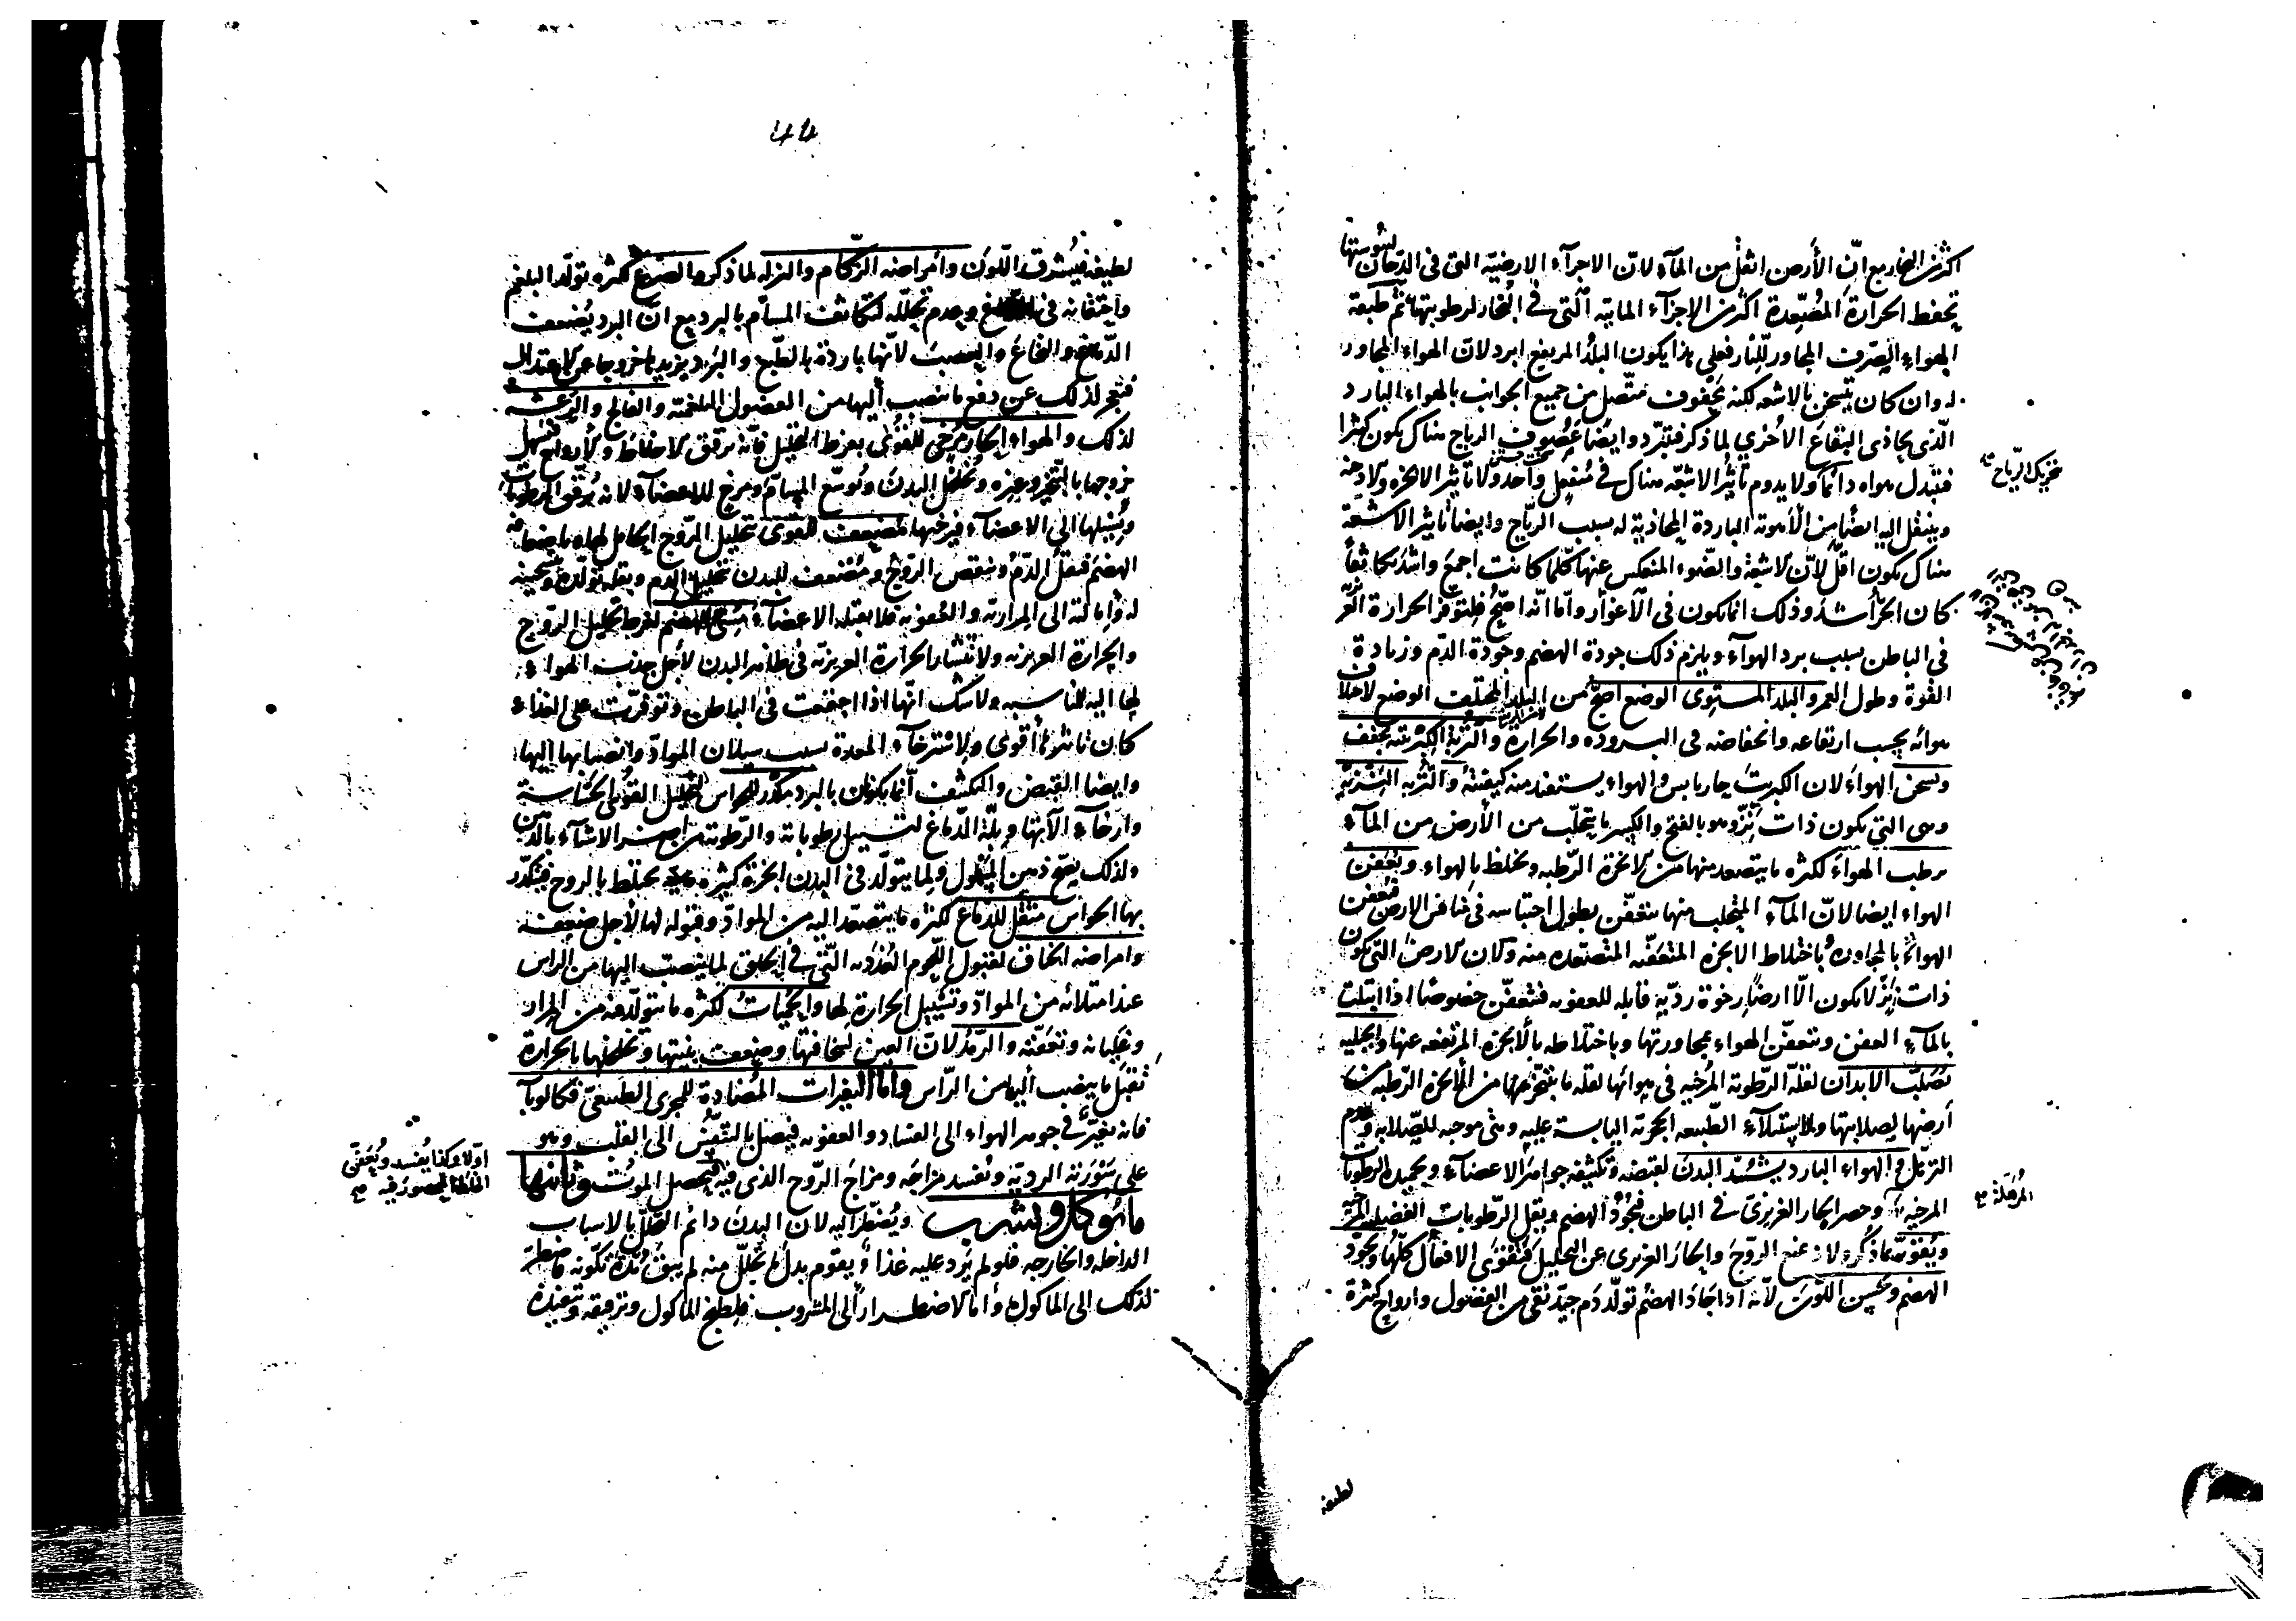 اكثر من البخار مع ان الأرض اثقل من المآء لانّ الاجزآء الارضيّه التى فى الدخان ليبوستها
تحفظ الحرارة المُصَعّدة اكثر من الاجزآء المائيّه الّتى فى البخار لرطوبتها ثم طبقة
الهواء الصِّرف المجاور للنار فعلى هذا يكون البلدُ المرتفع ابرد لانّ الهواء المجاور
له وان كان يتسخن بالاشعه لكنه محفوف متّصل من جميع الجوانب بالهواء البارد
الّذى يحاذى البقاعَ الاُخرى لما ذكر فتبرّد وايضا عصوف الرياح هناك يكون كثيرا
فتبدل هواه دآئما ولا يدوم تاثيُر الاشعّه هناك فى مُنفعِلٍ واحد ولا تاثير الابخره والادخنه
تحريك الرّياح صح
وينتقل اليه ايضًا من الأهوية الباردة المحاذية له بسبب الرياح وايضا تاثير الاشعّة
هناك يكون اقلّ لانّ الاشعّة والضّوء المنعكس عنها كلّما كانت اجمعَ واشدّ تكاثفًا
كان الحرّ أشد وذلك انما يكون فى الاغوار وامّا انّه اصحُّ فلتوفّر الحرارة الغريزية
فى الباطن بسبب برد الهوآء ويلزم ذلك جودة الهضم وجودة الدّم وزيادة
القوة وطول العمر والبلد المستوى الوضع اصحّ من البلد المختلف الوضع لاختلاف
هوائه بحسب ارتفاعه وانخفاضه فى البروده والحرارة والتربة الكبريتية تجفف
وتسخن الهواءَ لان الكبريت حار يابس والهواء يستفيد منه كيفيّته والتُربه النَّزِيّة
وهى التى تكون ذات نزّ وهو بالفتح والكسر ما يتحلّب من الأرض من المآء
ترطب الهواءَ لكثرة ما يتصعد منها من الابخرة الرّطبه وتختلط بالهواء وتُعفّن
الهواء ايضا لانّ المآء المتحلب منها يتعفّن بطول احتباسه فى منافس الارض فتعفن
الهواءَ بالمجاورة وباختلاط الابخره المتعفّنه المتصعّده منه ولان الارض التى تكون
ذات نزّ لا تكون الّا ارضًا رخوة ردّيه قابله للعفونه فتتعفّن خصوصًا اذا ابتلت
بالمآء العفن وتتعفّن الهواء بمجاورتها وباختلاطه بالأبخرة المرتفعه عنها والجبليه
تُصلّب الابدان لقلّة الرّطوبة المُرخيه فى هوائها لقله ما يتبخّر عنها من الأبخره الرّطبه من
أرضها لصلابتها ولاستيلآء الطّبيعه الحجريّه اليابسة عليه وهى موجبه للصّلابه وعدم
الترهّل والهواء البارد يشُدّ البدنَ لقبضه وتكثيفه جواهرَ الاعضآء وتجميده الرطوبات
المُرهّلة صح
المرخيه وحصر الحار الغريزى فى الباطن فيجوُد الهضم ويقل الرّطوبات الفضليه المرخيه
ويُقوّيه لما ذُكر ولانه يمنع الروّحَ والحارّ الغريزى عن التحليل فيقوى الافعال كلّها ويجوّد
الهضم ويحسن اللونَ لأنّه اذا جادَ الهضم تولّد دم جيّد نقى من الفضول وارواح كثيرة
لطيفة
٤٤
لطيفه فيُشرق اللّون وامراضه الزّكام والنزله لما ذكر والصرع لكثره تولّد البلغم
واحتقانه فى الدماغ وعدم تحلّله لتكاثف المسآم بالبرد مع انّ البرد يُضعف
الدّماغ والنخاعَ والعصبَ لانّها باردة بالطّبع والبرد يزيدها خروجا عن الاعتدال
فتعجز لذلك عن دفع ما ينصبّ اليها من الفضول البلغميّه والفالج والرّعشه
لذلك والهواء الحار مُرخٍ للقوى بفرط التحليل فانّه يرقق الاخلاط والأرواح فيسهل
خروجها بالتبخر وغيره ويخلخل البدنَ ويُوسّع المسآمّ ومرخٍ للاعضآء لانه يُرقّق الرطوبات
ويُسيلها الى الاعضآء فيرخيها مُضعِف للقوى بتحليل الروّح الحامل لها باضعافه
الهضمَ فيقلُ الدّمُ وينقص الروّحُ ومُضعف للبدن بتحليل الدم وبقله تولّده وتسخينه
له وامالته الى المراريّه والعفونه فلا يقبله الاعضآء مُسئ للهضم لفرط تحليل الروّح
والحرارة الغريزيه ولانتشار الحرارة الغريزيّه فى ظاهر البدن لأجل جذب الهواء
لها اليه للمناسبه ولا شكّ انّها اذا اجتمعت فى الباطن وتوفّرت على الغذاء
كان تاثيرها أقوى ولاسترخآء المعدة بسبب سيلان الموادّ وانصبابها اليها
وايضا القبض والتكثيف انّما يكونان بالبرد مكدّر للحواس لتحليل القوى الحسّاسة
وارخآء الآتها وبِلّة الدّماغ لتسييل رطوباته والرّطوبة من اضرّ الاشيآء بالذّهن
ولذلك يقع ذهن المبلول ولما يتولّد فى البدن ابخرة كثيره تختلط بالروح فيتكدّر
بها الحواس مثقل للدّماع لكثره ما يتصعّد اليه من الموادّ وقبوله لها لأجل ضعفه
وامراضه الخناق لقبول اللّحوم الغُدَدِيه الّتى فى الحلق لما ينصبّ اليها من الراس
عند امتلائه من الموادّ وتسييل الحرارة لها والحُمّياتُ لكثره ما يتولّد فيه من المرار
وغليانه وتعفّنه والرّمدُ لانّ العين لسخافتها وضعف بنيتها وتخلخلها بالحرارة
تقبَل ما ينصب اليها من الرّاس وامّا التغيّرات المُضادة للمجرى الطبيعىّ فكالوبآ
فانه تغيّر فى جوهر الهواء الى الفساد والعفونه فيصل بالتنفّس الى القلب وهو
اوّلا وكذا يُفسد ويُعَفّن
الخلط المحصور فيه صح
على سَوْرته الرديّة ويُفسد مزاجَه ومزاجَ الرّوح الذى فيه فيحصل الموتُ وثانيها
ما يُوكل ويشرب ويُضطرّ اليه لان البدنَ دائم التحلّل بالاسباب
الداخله والخارجه فلو لم يَرد عليه غذاءٌ يقوّم بدل ما يتحلّل منه لم يبقَ مُدّة تكوّنه فاضطرّ
لذلك الى الماكول وأما الاضطرار الى المشروب فلطبخ الماكول وترقيقه وتنفيذه